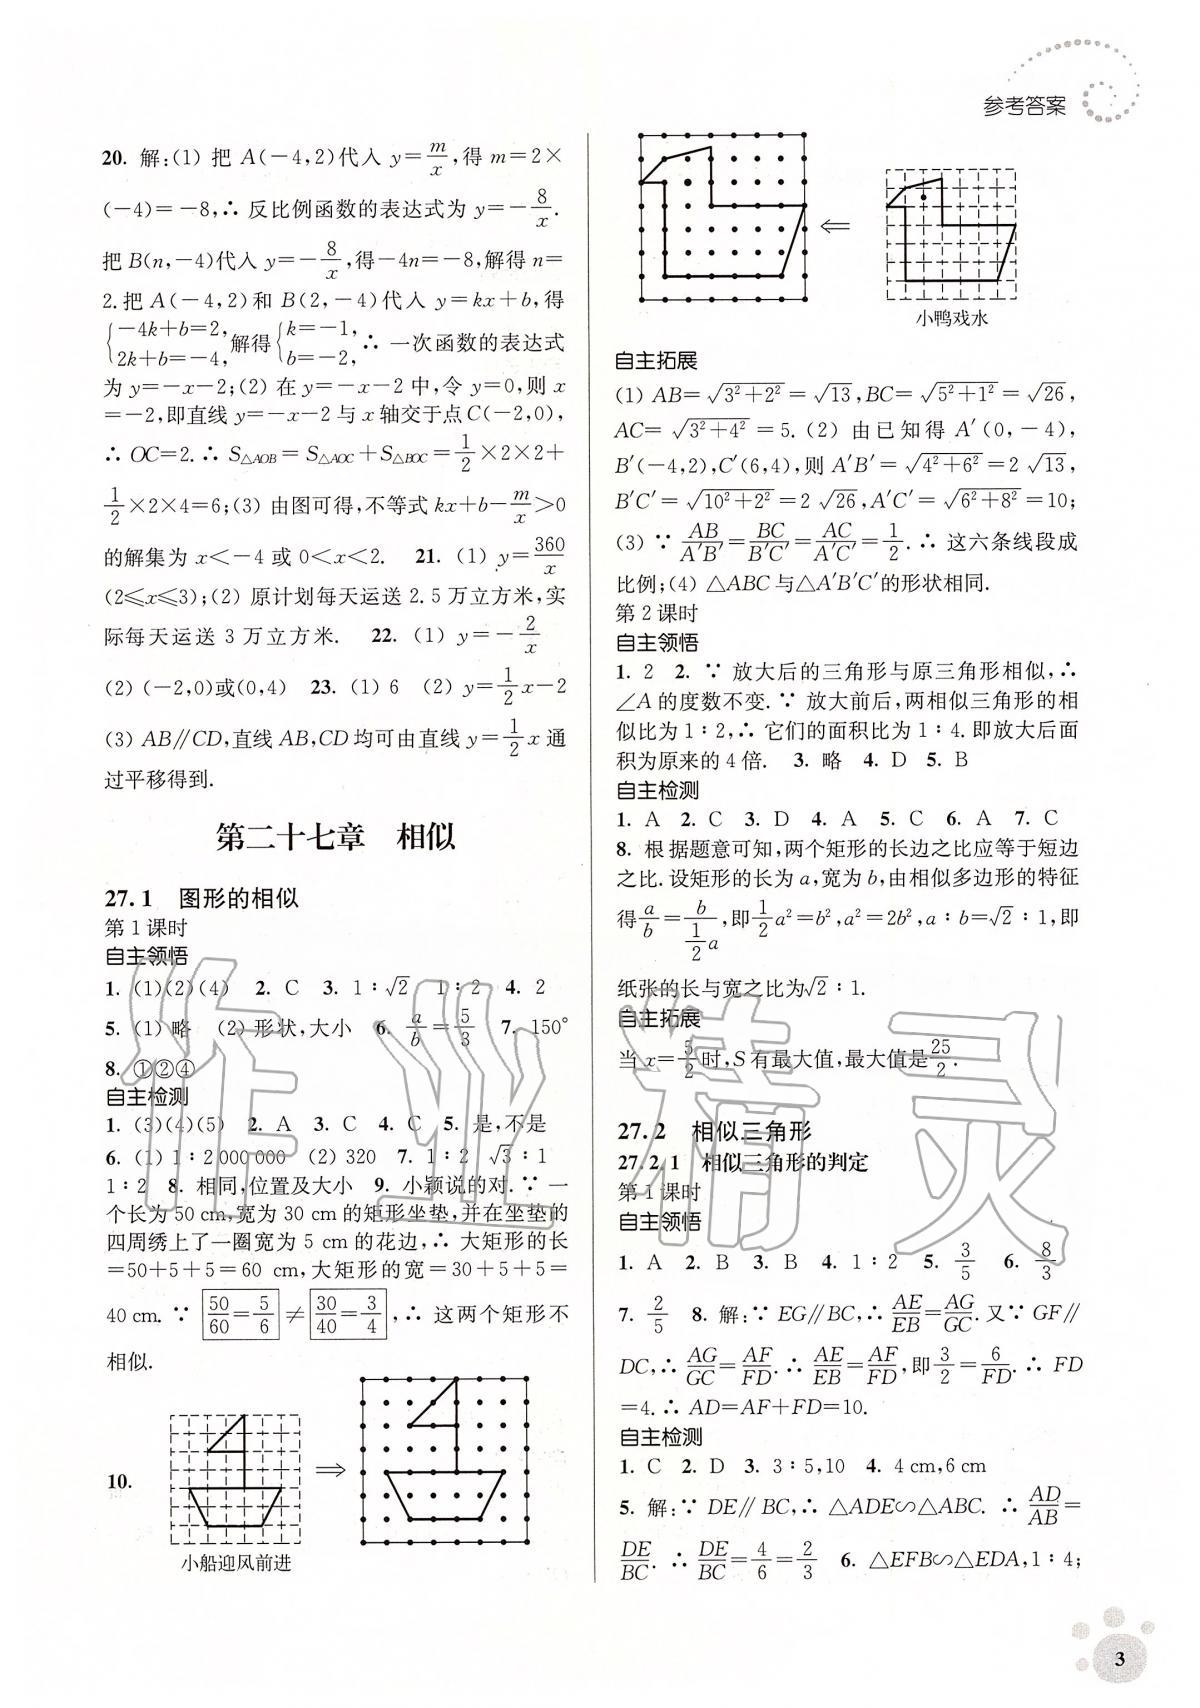 参考答案
20. 解:(1) 把 A(-4,2)代入 y=m/x,得 m=2×
(-4)=-8,∴ 反比例函数的表达式为 y=-8/x.
把 B(n,-4)代入 y=-8/x,得-4n=-8,解得 n=
2.把 A(-4,2)和 B(2,-4)代入 y=kx+b,得
{-4k+b=2, 2k+b=-4, 解得 {k=-1, b=-2, ∴ 一次函数的表达式
为 y=-x-2;(2) 在 y=-x-2 中,令 y=0,则 x
=-2,即直线 y=-x-2 与 x 轴交于点 C(-2,0),
∴ OC=2.∴ S△AOB=S△AOC+S△BOC=1/2×2×2+
1/2×2×4=6;(3) 由图可得,不等式 kx+b-m/x>0
的解集为 x<-4 或 0<x<2. 21. (1) y=360/x
(2≤x≤3);(2) 原计划每天运送 2.5 万立方米,实
际每天运送 3 万立方米. 22. (1) y=-2/x
(2) (-2,0)或(0,4) 23. (1) 6 (2) y=1/2x-2
(3) AB∥CD,直线 AB,CD 均可由直线 y=1/2x 通
过平移得到.
第二十七章 相似
27.1 图形的相似
第 1 课时
自主领悟
1. (1)(2)(4) 2. C 3. 1∶√2 1∶2 4. 2
5. (1) 略 (2) 形状,大小 6. a/b=5/3 7. 150°
8. ①②④
自主检测
1. (3)(4)(5) 2. A 3. C 4. C 5. 是,不是
6. (1) 1∶2 000 000 (2) 320 7. 1∶2 √3∶1
1∶2 8. 相同,位置及大小 9. 小颖说的对.∵ 一
个长为 50 cm,宽为 30 cm 的矩形坐垫,并在坐垫的
四周绣上了一圈宽为 5 cm 的花边,∴ 大矩形的长
=50+5+5=60 cm,大矩形的宽=30+5+5=
40 cm. ∵ 50/60=5/6 ≠ 30/40=3/4,∴ 这两个矩形不
相似.
10.
⇒
小船迎风前进
⇐
小鸭戏水
自主拓展
(1) AB=√(3²+2²)=√13,BC=√(5²+1²)=√26,
AC=√(3²+4²)=5.(2) 由已知得 A′(0,-4),
B′(-4,2),C′(6,4),则 A′B′=√(4²+6²)=2√13,
B′C′=√(10²+2²)=2√26,A′C′=√(6²+8²)=10;
(3) ∵ AB/A′B′=BC/B′C′=AC/A′C′=1/2.∴ 这六条线段成
比例;(4) △ABC 与△A′B′C′的形状相同.
第 2 课时
自主领悟
1. 2 2. ∵ 放大后的三角形与原三角形相似,∴
∠A 的度数不变.∵ 放大前后,两相似三角形的相
似比为 1∶2,∴ 它们的面积比为 1∶4.即放大后面
积为原来的 4 倍. 3. 略 4. D 5. B
自主检测
1. A 2. C 3. D 4. A 5. C 6. A 7. C
8. 根据题意可知,两个矩形的长边之比应等于短边
之比.设矩形的长为 a,宽为 b,由相似多边形的特征
得 a/b=b/(1/2 a),即 1/2a²=b²,a²=2b²,a∶b=√2∶1,即
纸张的长与宽之比为√2∶1.
自主拓展
当 x=5/2时,S 有最大值,最大值是25/2.
27.2 相似三角形
27.2.1 相似三角形的判定
第 1 课时
自主领悟
1. A 2. B 3. B 4. 1∶2 5. 3/5 6. 8/3
7. 2/5 8. 解:∵ EG∥BC,∴ AE/EB=AG/GC.又∵ GF∥
DC,∴ AG/GC=AF/FD.∴ AE/EB=AF/FD,即3/2=6/FD.∴ FD
=4.∴ AD=AF+FD=10.
自主检测
1. C 2. D 3. 3∶5,10 4. 4 cm,6 cm
5. 解:∵ DE∥BC,∴ △ADE∽△ABC. ∴ AD/AB=
DE/BC. ∴ DE/BC=4/6=2/3 6. △EFB∽△EDA,1∶4;
作业精灵
3